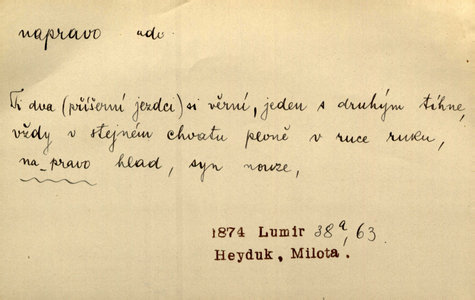 napravo adv.
Ti dva (příšerní jezdci) si věrní, jeden s druhým tíhne,
vždy v stejném chvatu pevně v ruce ruku,
na pravo hlad, syn nouze,
1874 Lumír 38a, 63.
Heyduk, Milota.